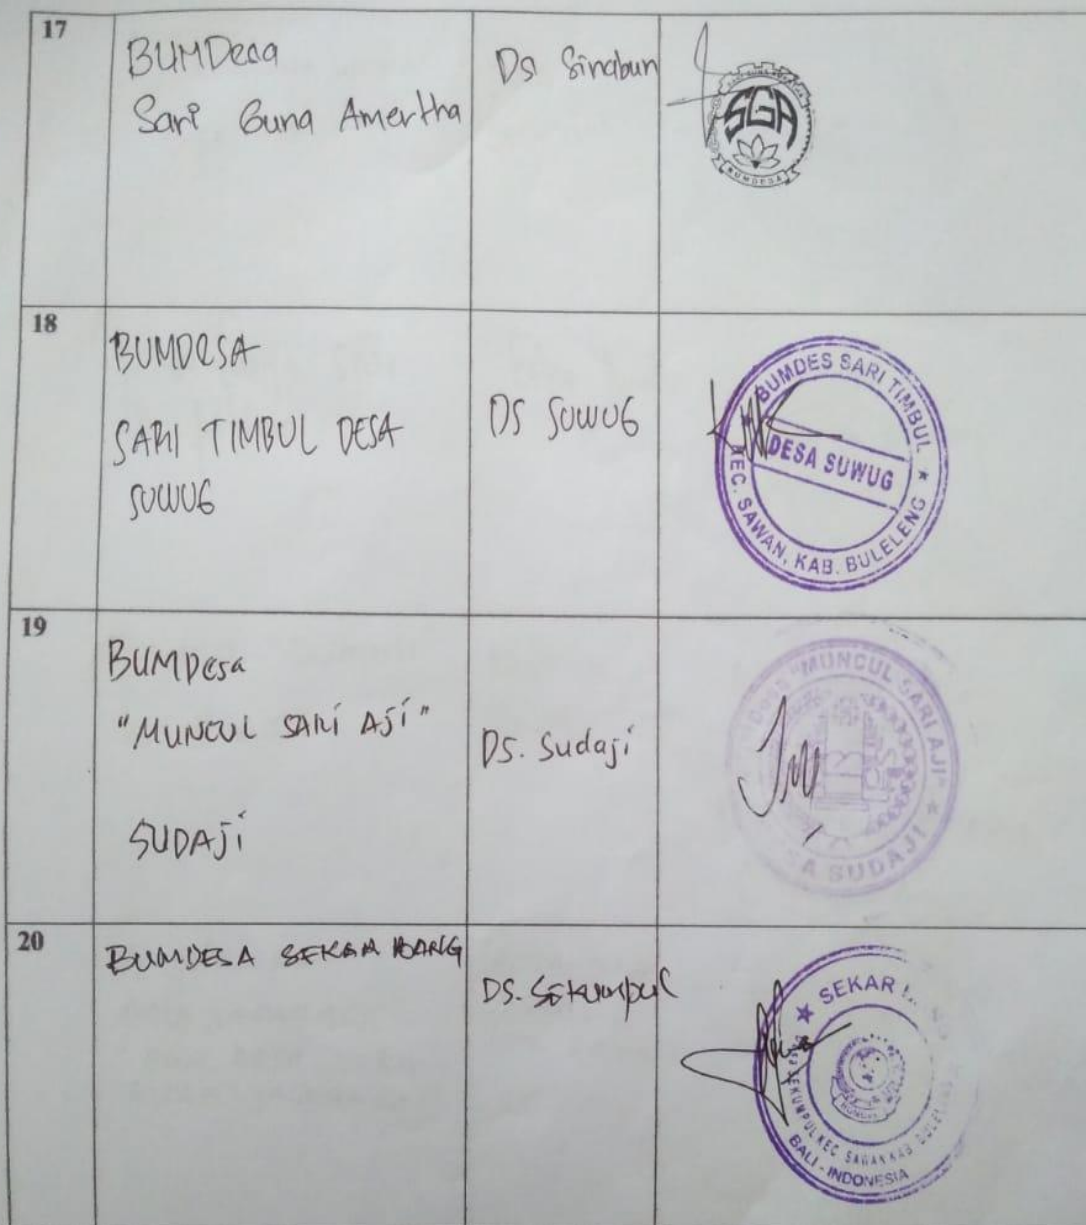 17
BUMDesa
Sari Guna Amertha
Ds Sinabun
SGA
BUMDESA
18
BUMDESA
SARI TIMBUL DESA
SUWUG
DS SUWUG
BUMDES SARI TIMBUL
DESA SUWUG
KEC. SAWAN, KAB. BULELENG
19
BUMDesa
"MUNCUL SARI AJI"
SUDAJI
DS. Sudaji
"MUNCUL SARI AJI"
SUDAJI
20
BUMDESA SEKAR BANG
DS. Sekumpul
SEKAR
SEKUMPUL KEC SAWAN KAB
BALI - INDONESIA